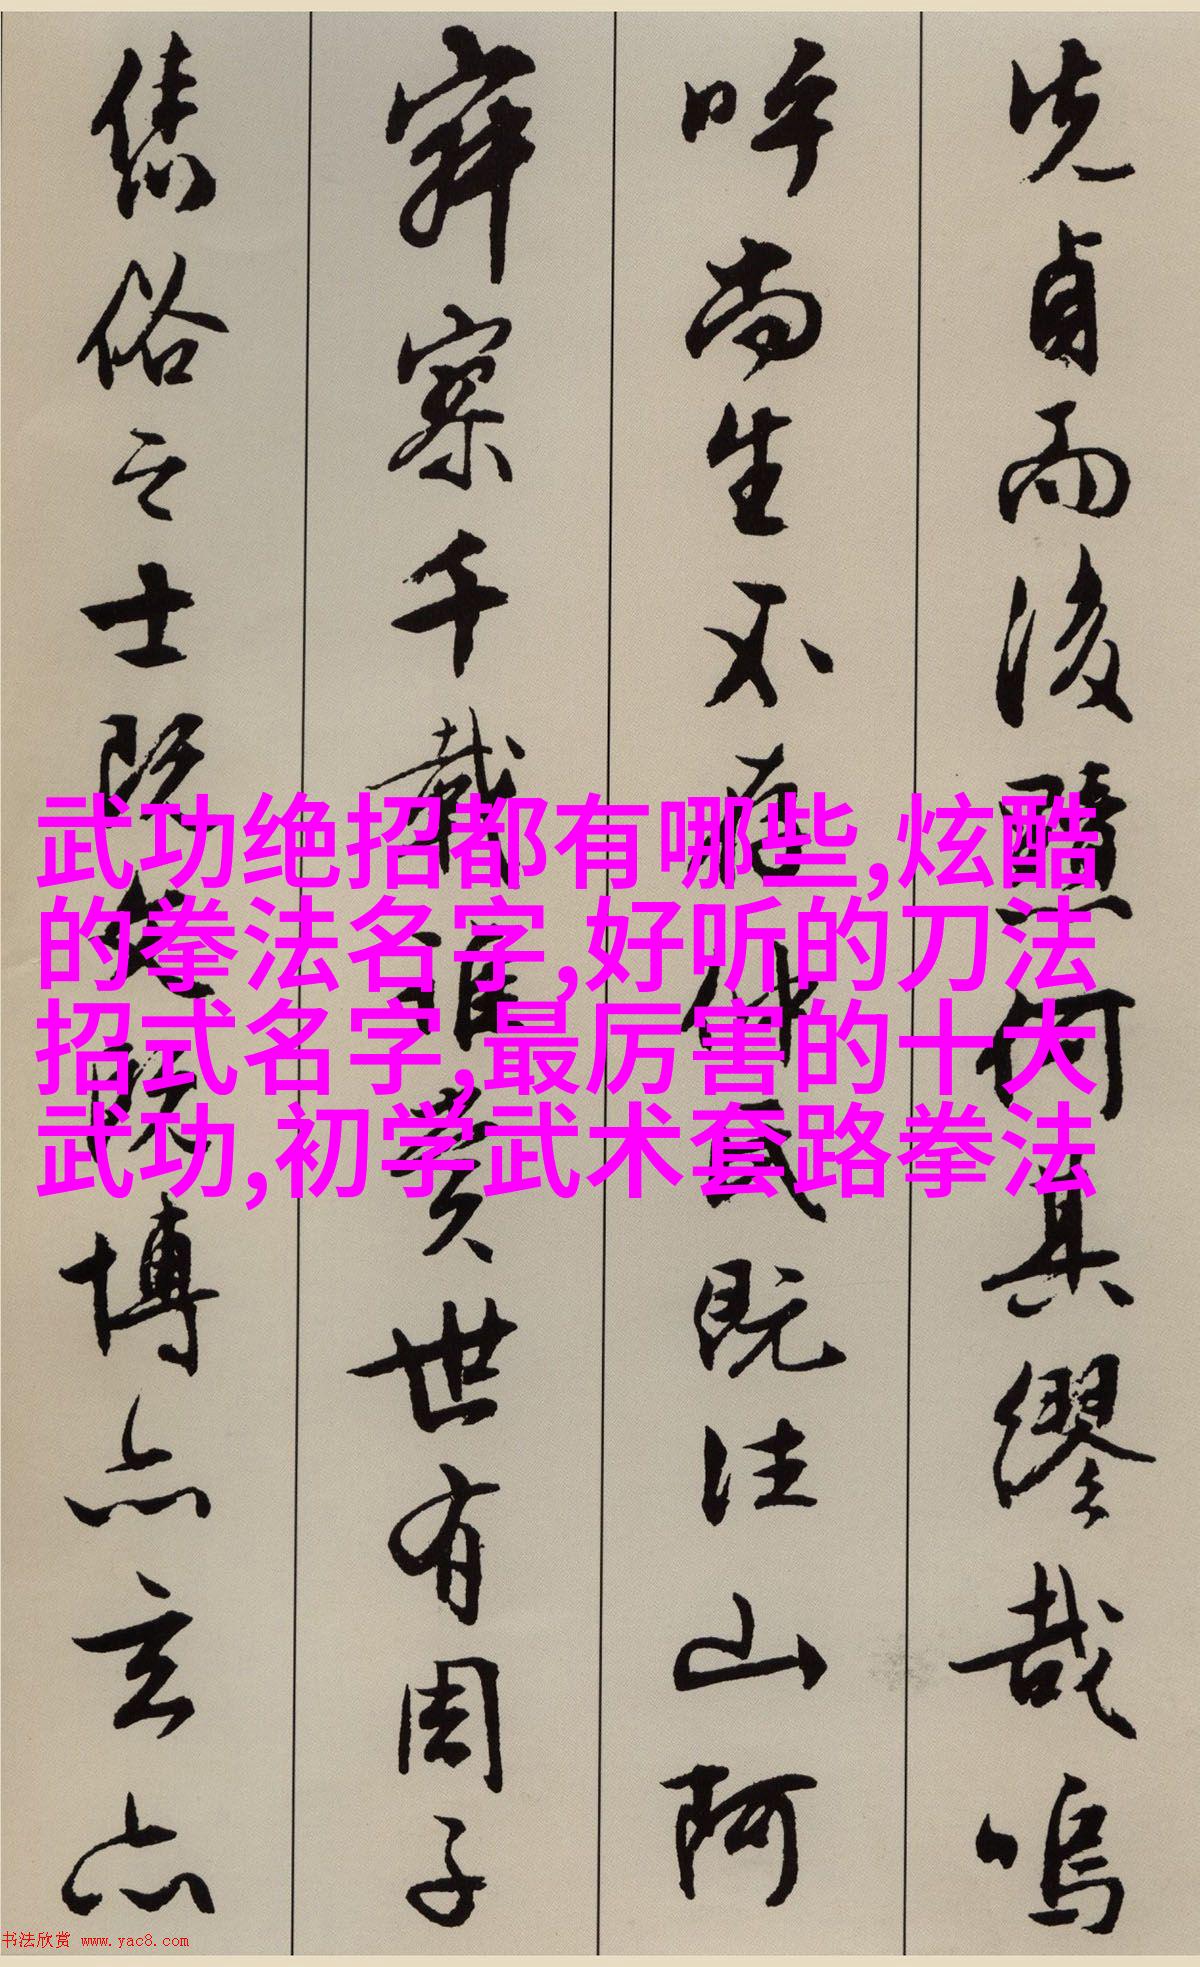 先貞而後黷何其繆哉嗚
呼尚生不存仲氏既往山阿
寂寥千載誰賞世有周子
雋俗之士既文既博亦玄亦
武功绝招都有哪些,炫酷
的拳法名字,好听的刀法
招式名字,最厉害的十大
武功,初学武术套路拳法
书法欣赏 www.yac8.com